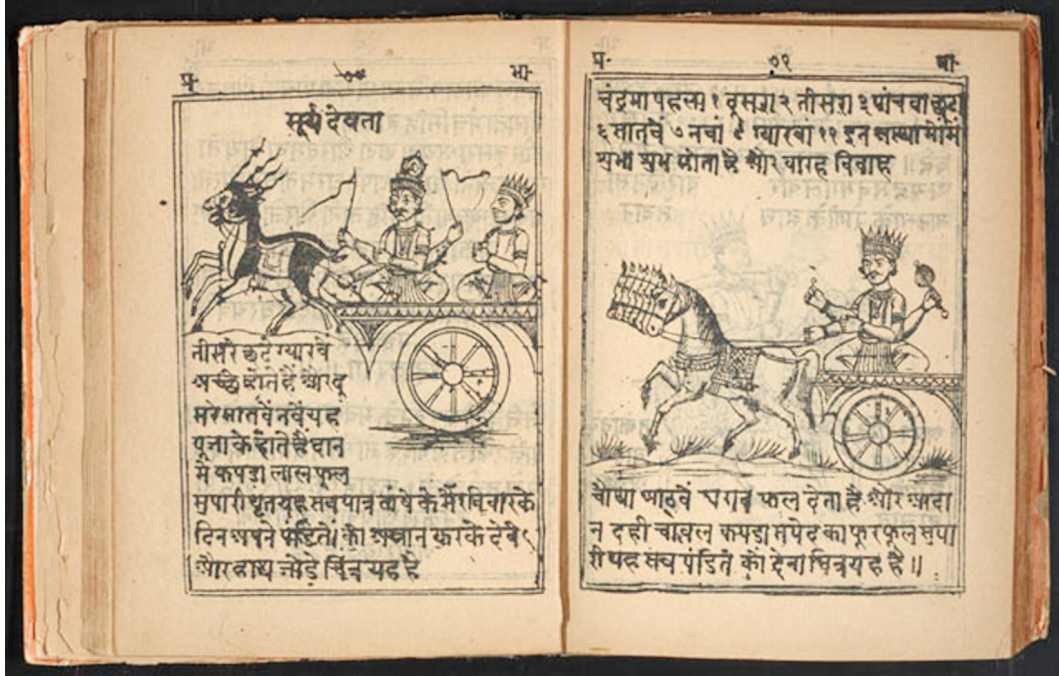 प्र· ७० भा·
सूर्य देवता
तीसरे छटे ग्यारवे
अच्छे होते है और दू
सरे सातवें नवें यह
पूजा के होते है दान
मे कपडा लाल फूल
सुपारी घृत यह सब पात्र के रविवार के
दिन अपने पंडितों को करके देवे
और हाथ जोडे चित्र यह है
प्र· ७१ भा·
चंद्रमा पहला १ दूसरा २ तीसरा ३ पांचवा छटा
६ सातवे ७ नवां ९ ग्यारवा ११ इन
शुभ होता है और बारह
चौथा आठवें खराब फल देता है और
न दही चावल कपडा सपेद काफूर फूल सुपा
री यह सब पंडित को देना चित्र यह है॥